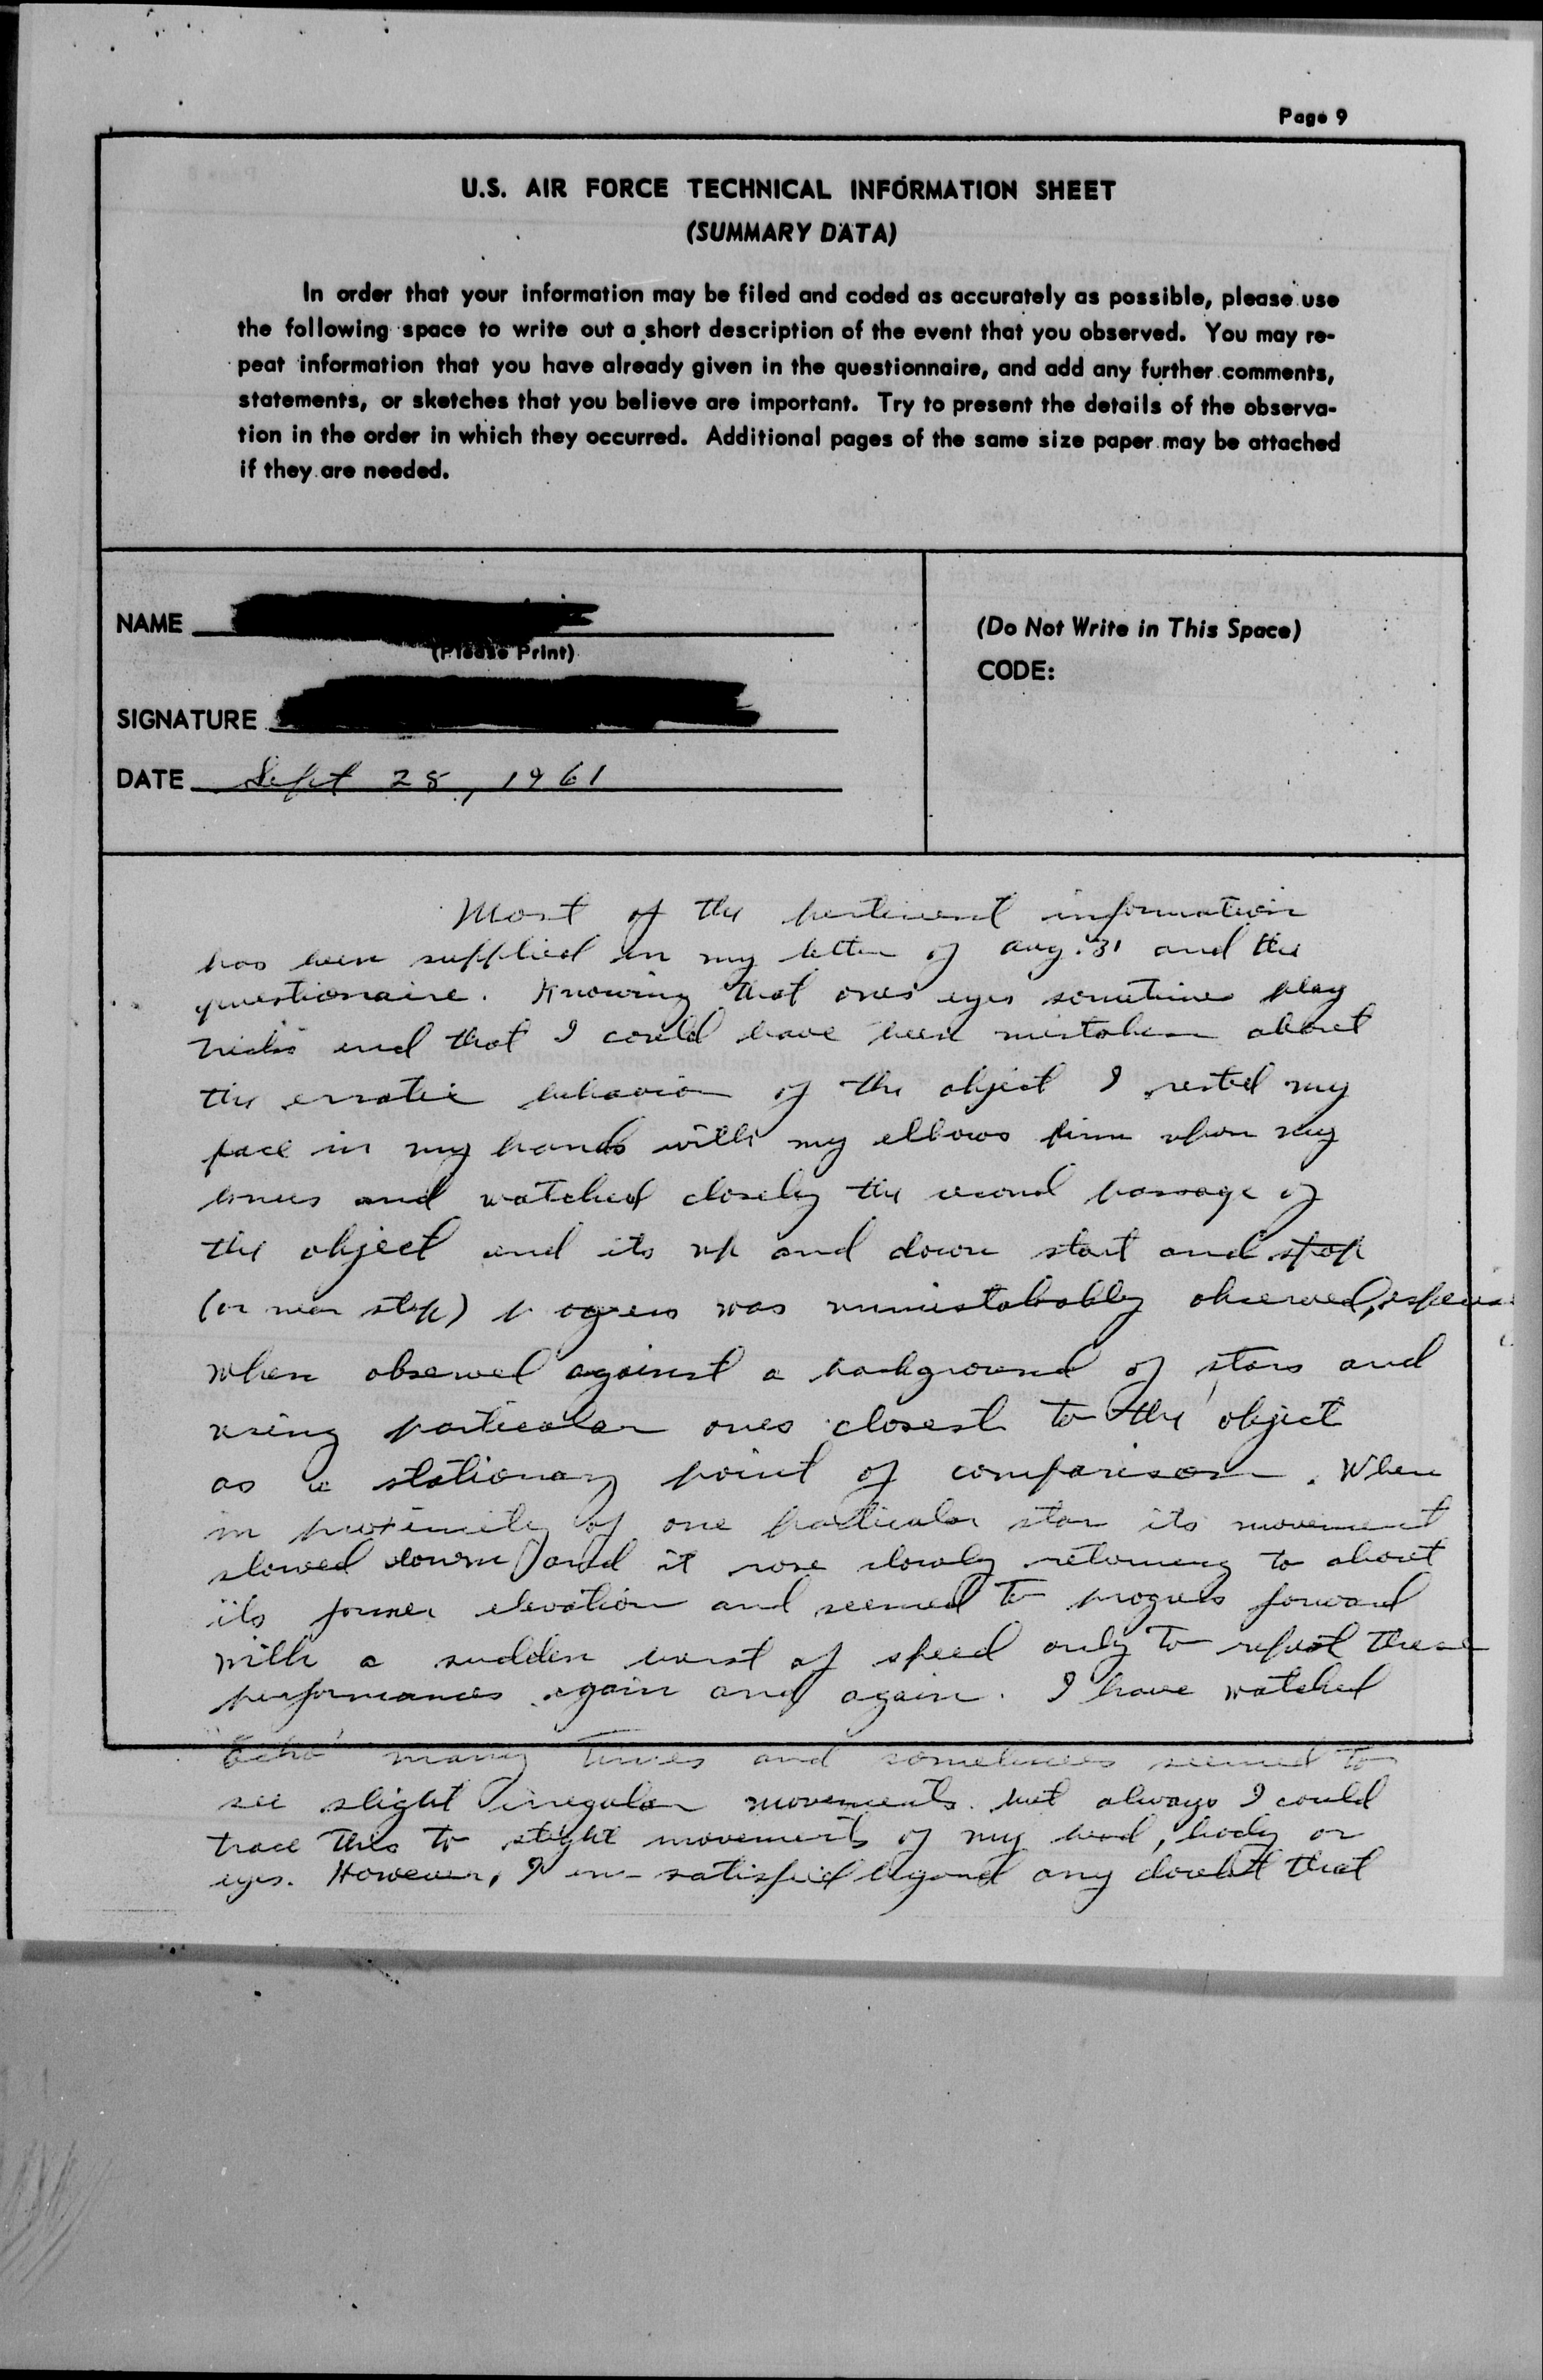 Page 9
U.S. AIR FORCE TECHNICAL INFORMATION SHEET
(SUMMARY DATA)
In order that your information may be filed and coded as accurately as possible, please use
the following space to write out a short description of the event that you observed. You may re-
peat information that you have already given in the questionnaire, and add any further comments,
statements, or sketches that you believe are important. Try to present the details of the observa-
tion in the order in which they occurred. Additional pages of the same size paper may be attached
if they are needed.
NAME
(Please Print)
SIGNATURE
DATE Sept 28, 1961
(Do Not Write in This Space)
CODE:
Most of the pertinent information
has been supplied in my letter of Aug. 31 and the
questionaire. Knowing that ones eyes sometimes play
tricks and that I could have been mistaken about
the erratic behavior of the object I rested my
face in my hands with my elbows firm upon my
knees and watched closely the second passage of
the object and its up and down start and stop
(or near stop) progress was unmistakably observed,
when observed against a background of stars and
using particular ones closest to the object
as a stationary point of comparison. When
in proximity of one particular star its movement
slowed down and it rose slowly returning to about
its former elevation and seemed to progress forward
with a sudden burst of speed only to repeat these
performances again and again. I have watched
"Echo" many times and sometimes seemed to
see slight irregular movements but always I could
trace this to slight movements of my head, body or
eyes. However, I am satisfied beyond any doubt that